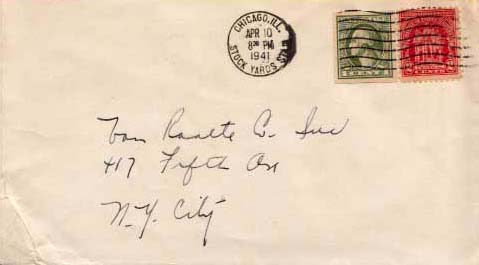 CHICAGO, ILL.
APR 10
8 30 PM
1941
STOCK YARDS STA.
Van Raalte Co. Inc
417 Fifth Ave
N.Y. City
CENTS